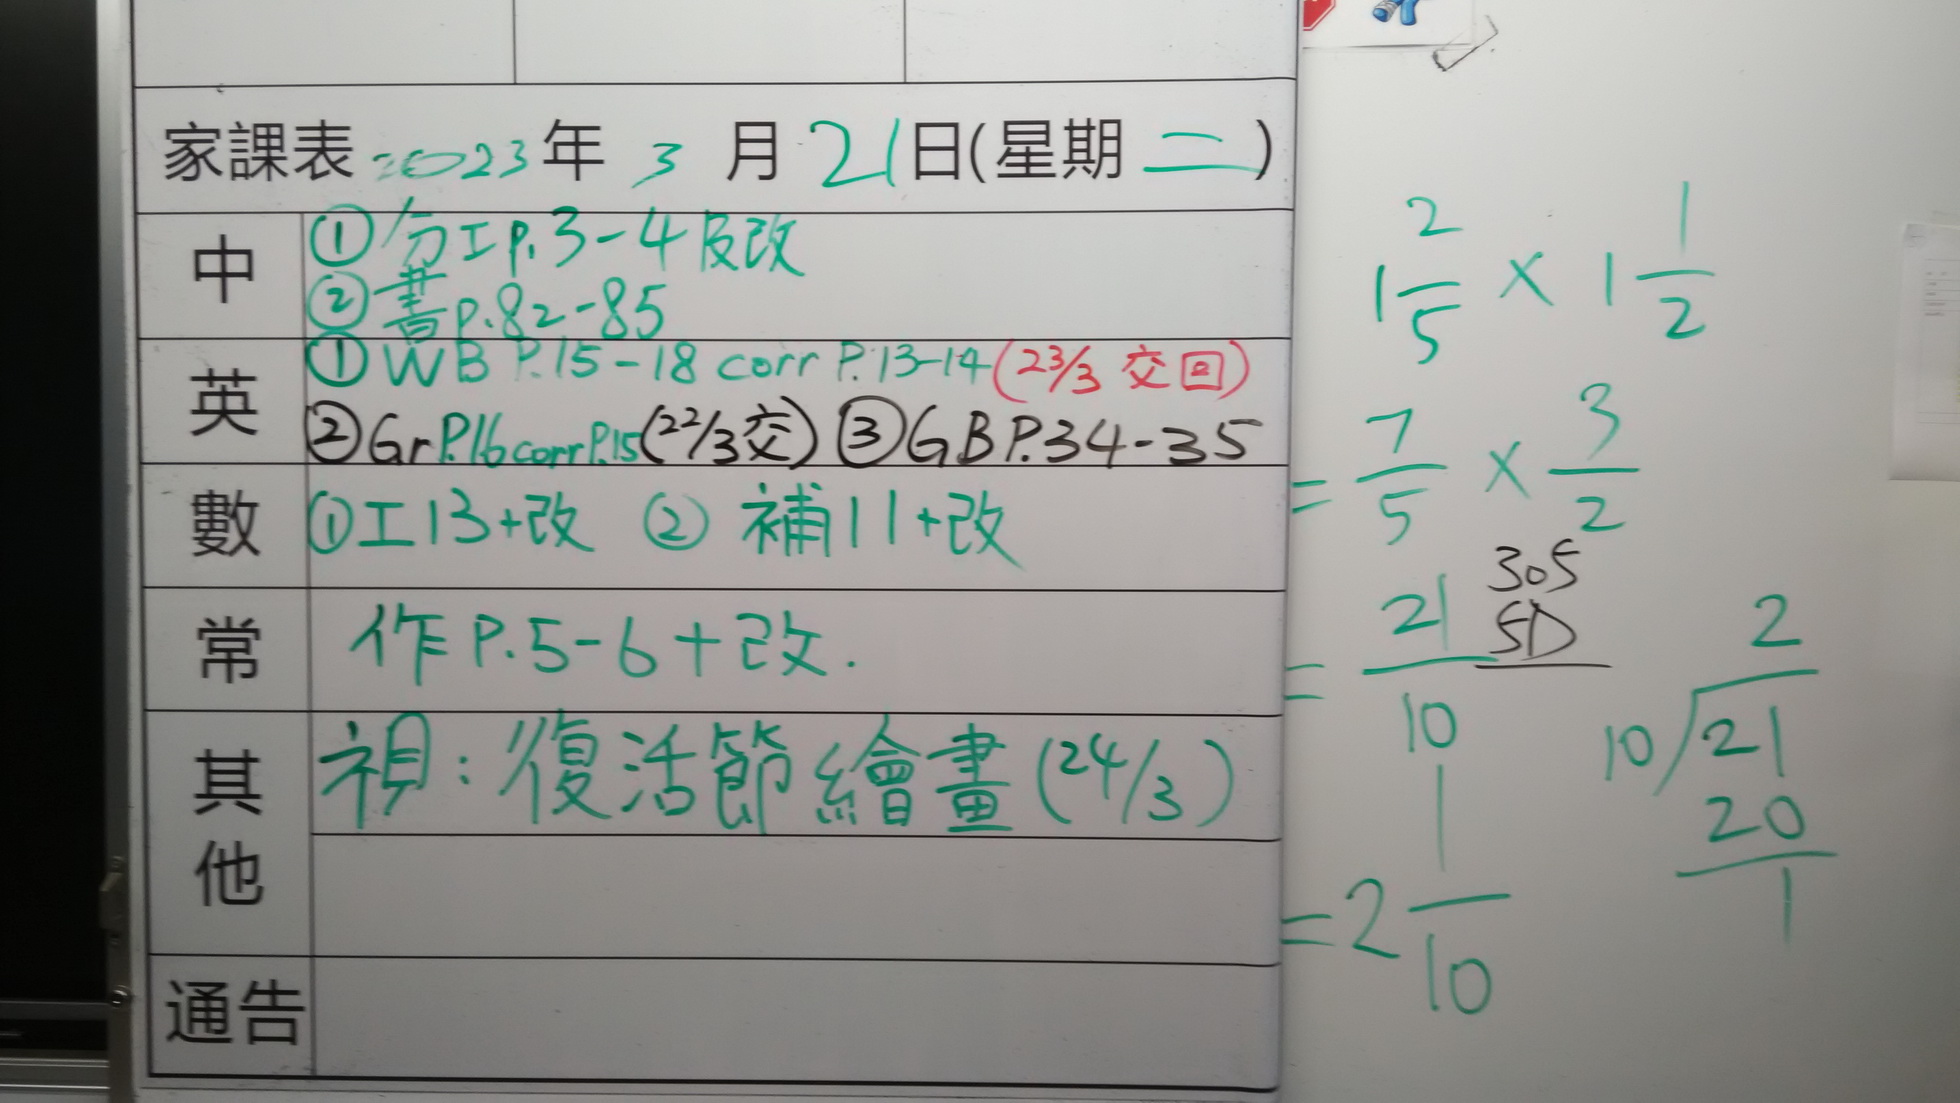 家課表 2023年 3 月 21日(星期 二 )
中
①分工p.3-4及改
②書p.82-85
英
①WB P.15-18 corr P.13-14(23/3 交回)
②Gr P.16 corr P.15(22/3交) ③GB P.34-35
數
①工13+改 ② 補11+改
常
作P.5-6+改.
其他
視:復活節繪畫(24/3)
通告
1 2/5 × 1 1/2
= 7/5 × 3/2
305
5D
= 21/10
= 2 1/10
2
10 21
20
1